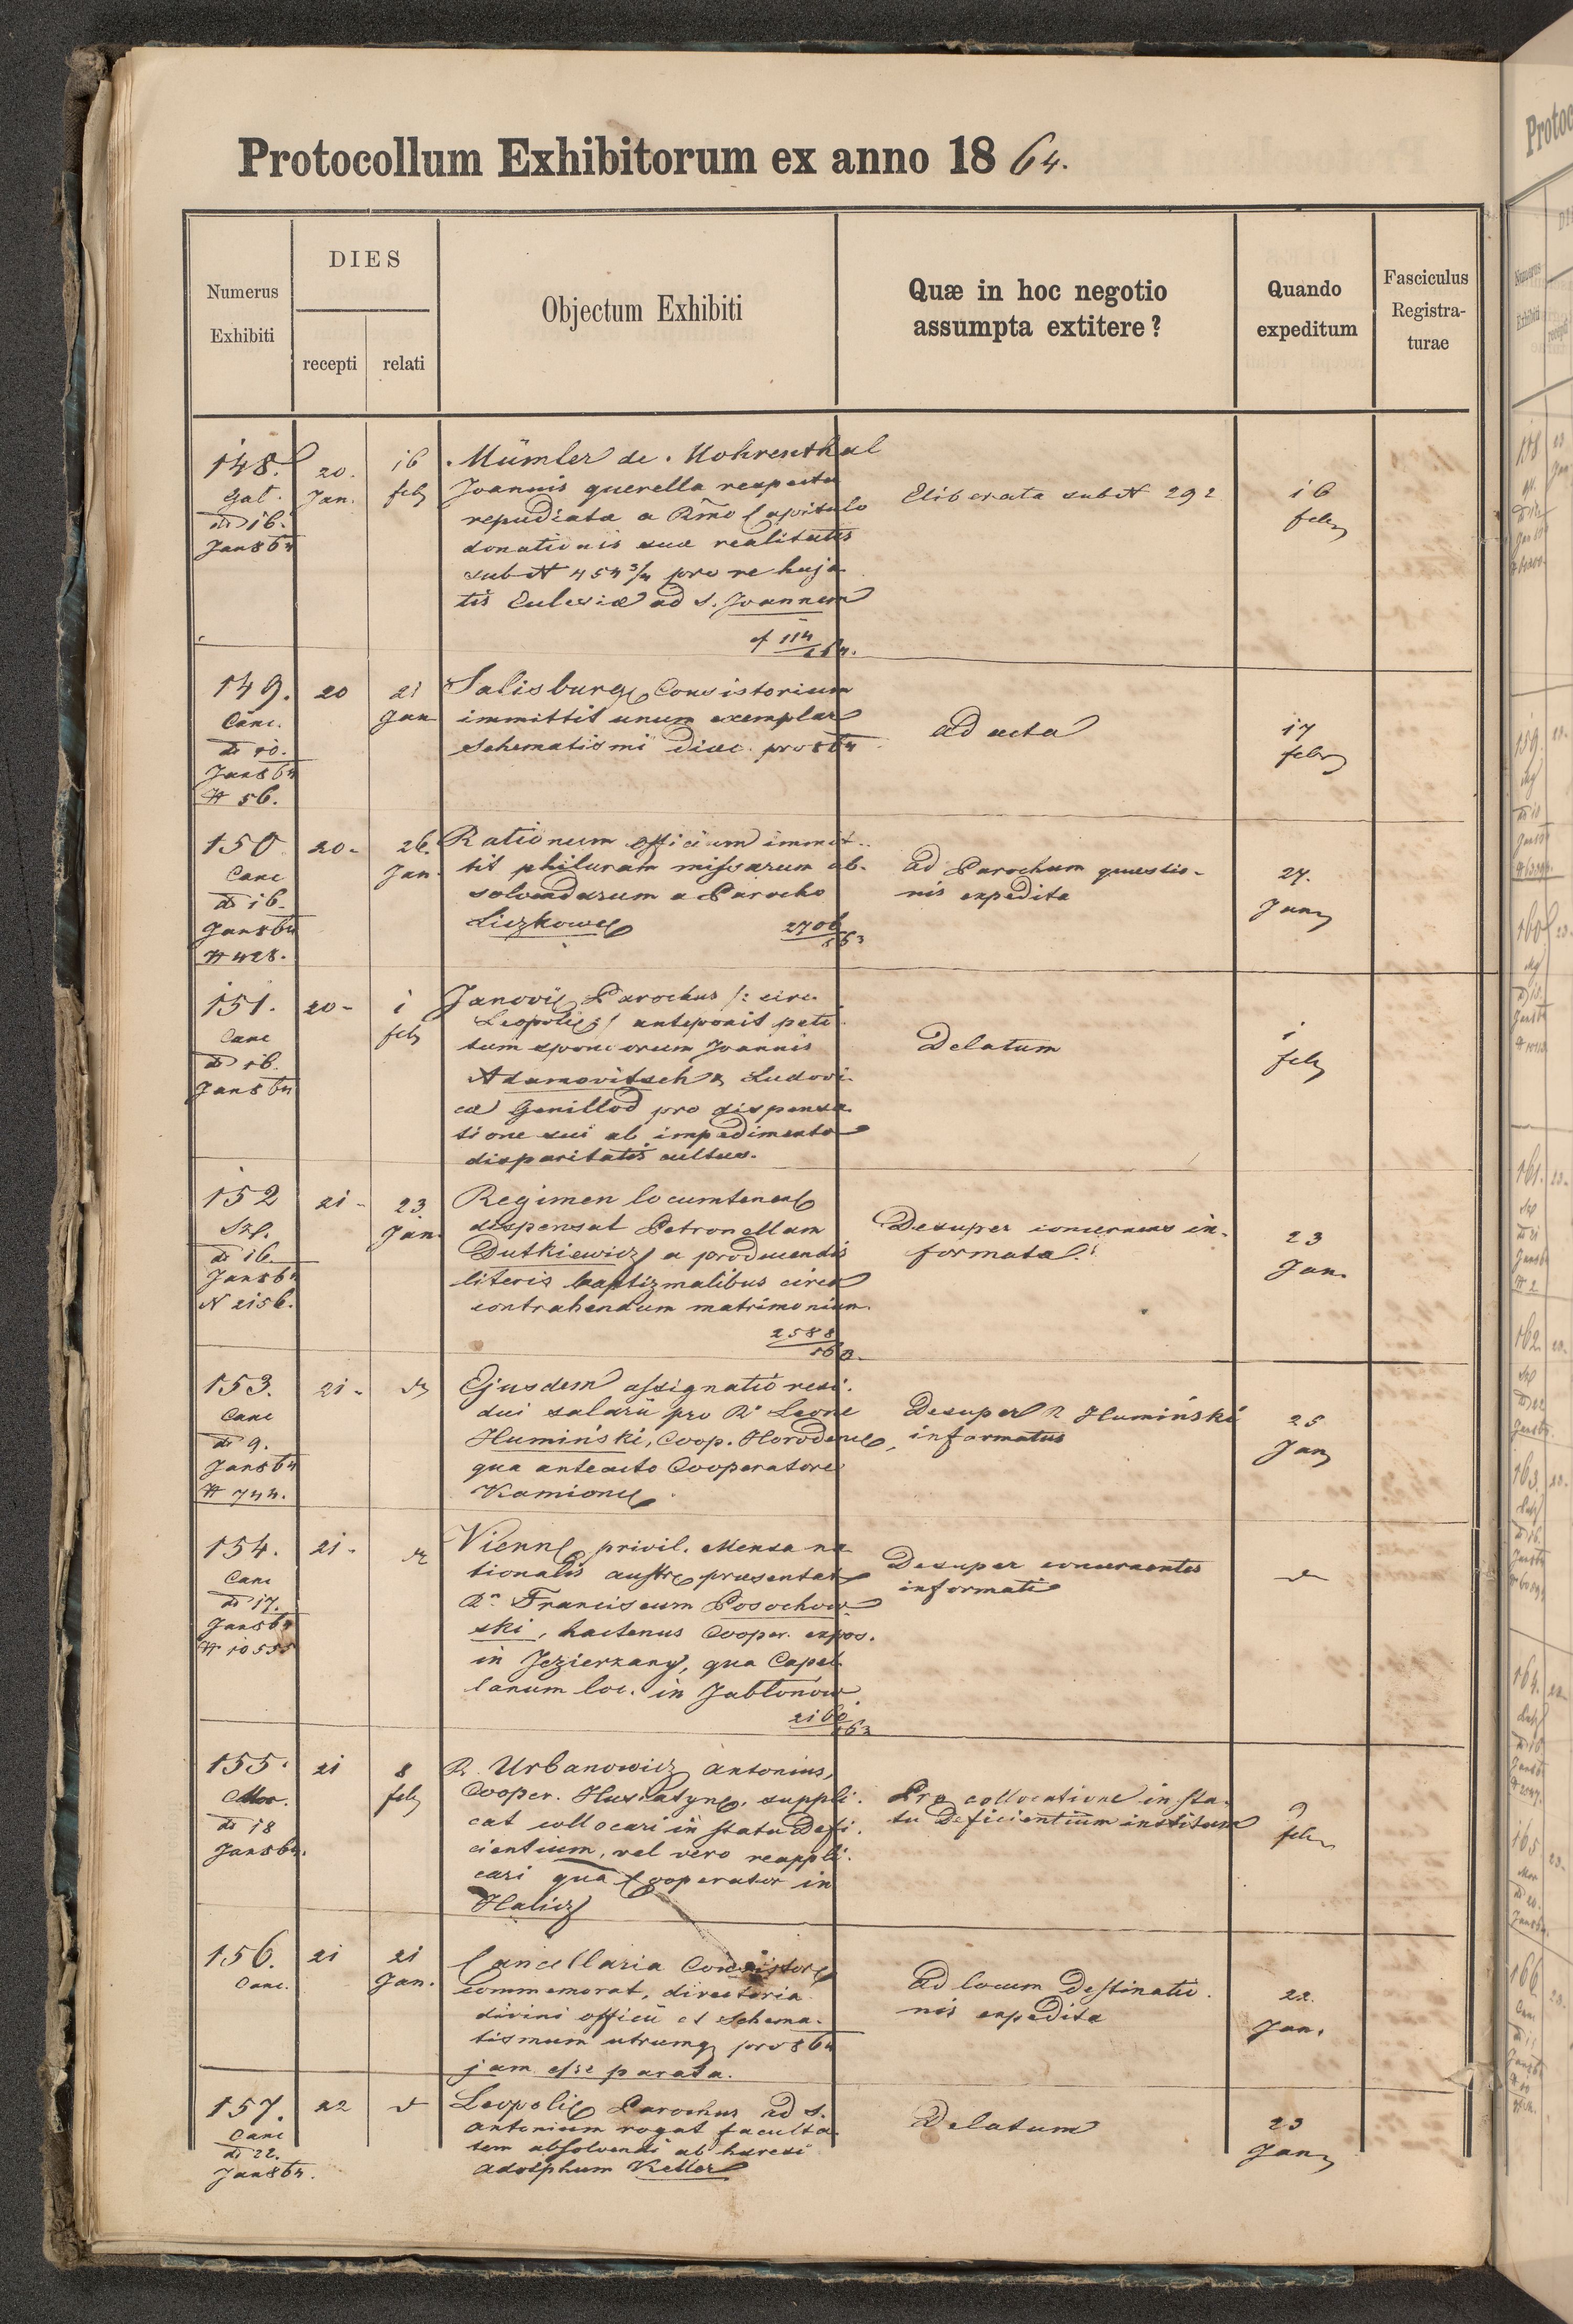 Protocollum Exhibitorum ex anno 1864.
Numerus
Exhibiti
DIES
recepti
relati
Objectum Exhibiti
Quæ in hoc negotio
assumpta extitere?
Quando
expeditum
Fasciculus
Registra-
turae
148.
Gal.
dt 16.
Jan 864
20.
Jan.
16
feb
Mümler de Mohrenthal
Joannis querella respectu
repudiata a Rmo Capitulo
donationis suæ realitatis
sub N 454 3/4 pro re huja
tis Eclesiæ ad S. Joannem
114
864.
Eliberata sub N 292
16
feb
149.
Canc.
dt 10.
Jan 864
N 56.
20
21
Jan
Salisburg Consistorium
immittit unum exemplar
schematismi diæc. pro 864
ad acta
17
feb
150
Canc
dt 16.
Jan 864
N 428.
20-
26.
Jan.
Rationum officium immit-
tit philuram missarum ab-
solvendarum a Parocho
Liczkow
2706
863
ad Parochum quæstio-
nis expedita
27.
Jan
151.
Canc
dt 16.
Jan 864
20-
1
feb
Janov Parochus /: circ.
Leopoli :/ anteponit peti
tum sponsorum Joannis
Adamovitsch & Ludovi-
cæ Genillod pro dispensa
tione sui ab impedimento
disparitatis cultus.
Delatum
1
feb
152
Szf.
dt 16
Jan 864
N 2156.
21-
23
Jan.
Regimen locumtenens
dispensat Petronellam
Dutkiewicz a producendis
literis baptizmalibus circa
contrahendum matrimonium.
2588
Desuper concernens in-
formata.
23
Jan.
153.
Canc
dt 9.
Jan 864
N 744.
21-
Ejusdem assignatio resi-
dui salarii pro R. Leone
Humiński, Coop. Horoden
qua anteacto Cooperatore
Kamion
Desuper R Humiński
informatus
25
Jan
154.
Canc
dt 17.
Jan 864
N 10555
21-
Vienn privil. Mensa na
tionalis austr præsentat
Rm Franciscum Posochow-
ski, hactenus Cooper. expos.
in Jezierzany, qua Capel
lanum loc. in Jabłonow
2160
863
Desuper concernentes
informati
155.
Mos.
dt 18
Jan 864.
21
8
feb
R. Urbanowicz Antonius,
Cooper. Husiatyn, suppli-
cat collocari in statu Defi-
cientium, vel vero reappli-
cari qua Cooperator in
Halicz
Pro collocatione in sta-
tu Deficientium institum
9
feb
156.
Canc.
21
21
Jan.
Cancellaria Consistor
commemorat, directoria
divini officii et Schema-
tismum utrumq pro 864
jam esse parata.
Ad locum Destinatio-
nis expedita
22.
Jan.
157.
Canc
dt 22.
Jan 864.
22
Leopoli Parochus ad S.
Antonium rogat faculta-
tem absolvendi ab hæresi
Adolphum Keller
Delatum
23
Jan